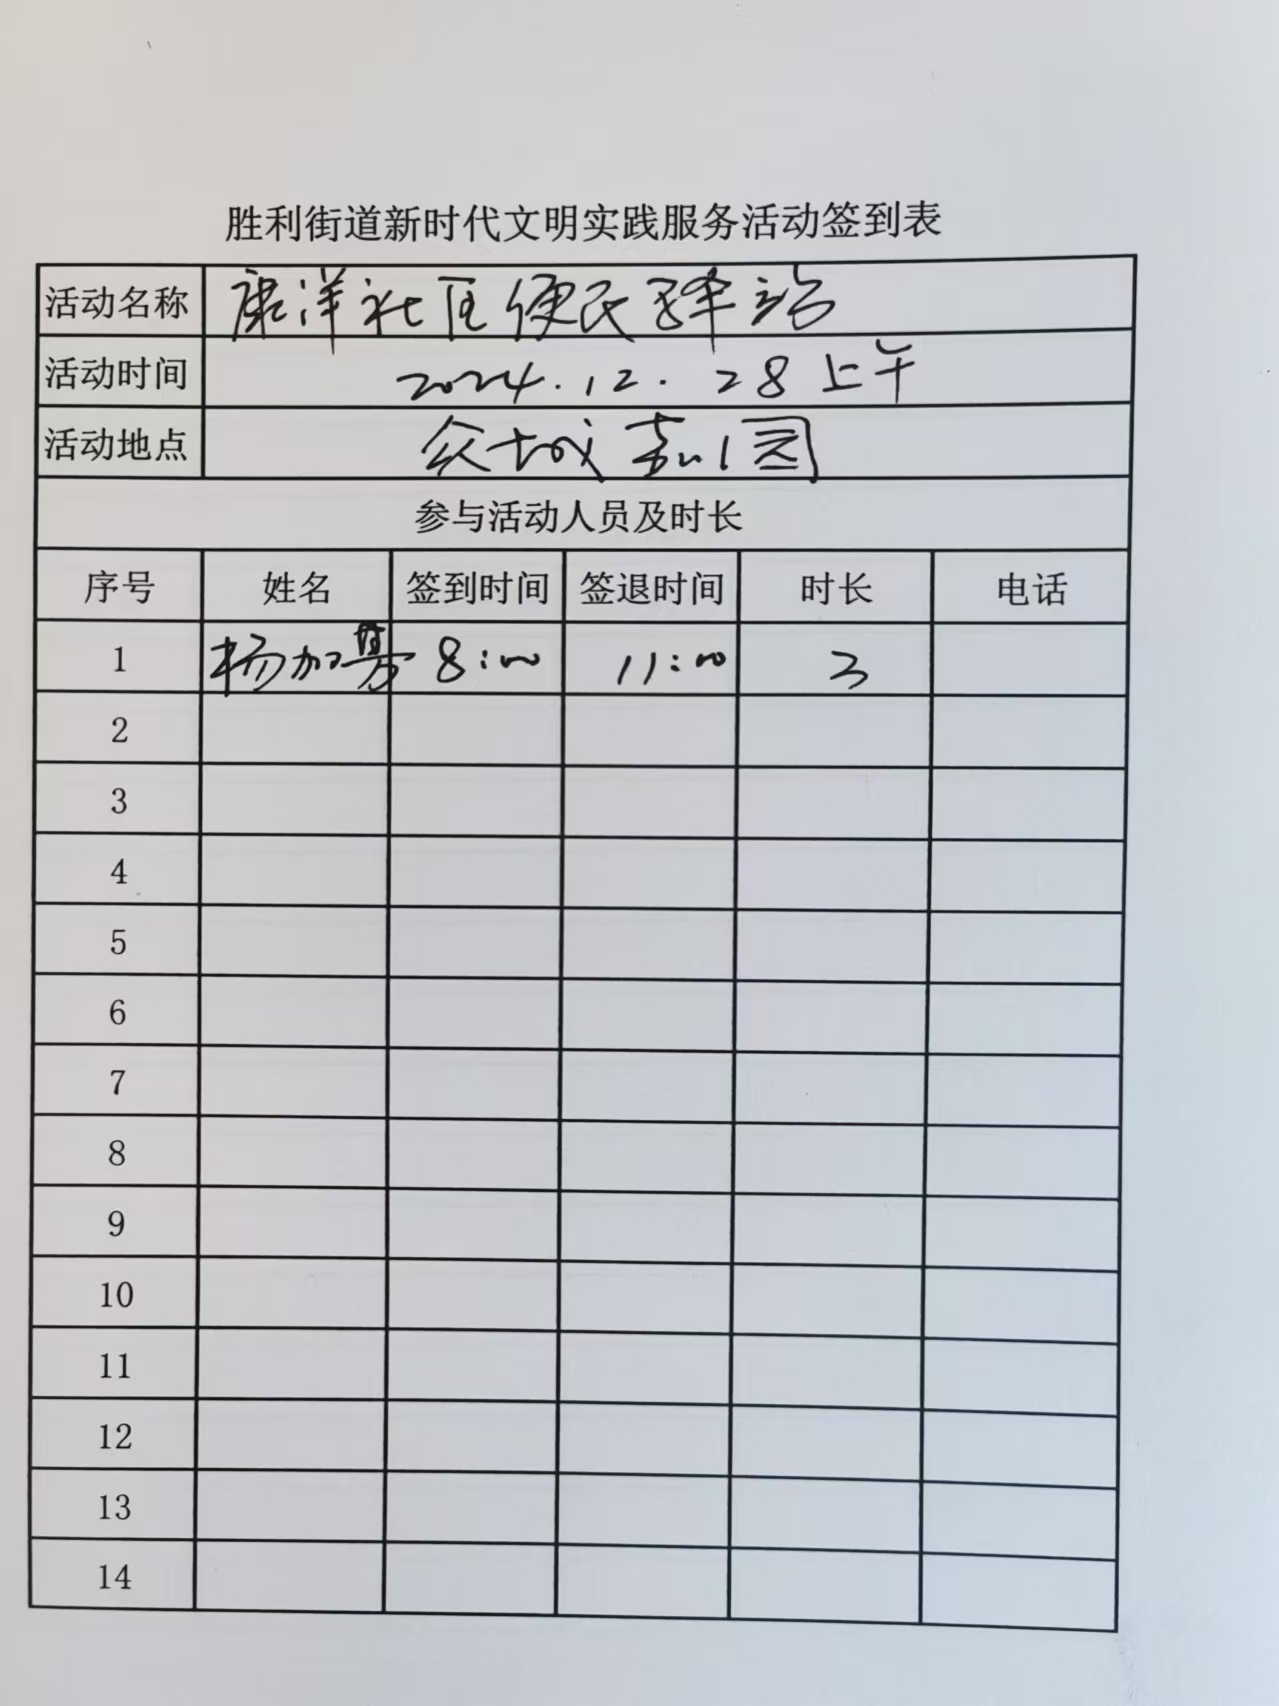 胜利街道新时代文明实践服务活动签到表
活动名称 康洋社区便民驿站
活动时间 2024.12.28上午
活动地点 众城嘉园
参与活动人员及时长
序号 姓名 签到时间 签退时间 时长 电话
1 杨加 8:00 11:00 3
2
3
4
5
6
7
8
9
10
11
12
13
14